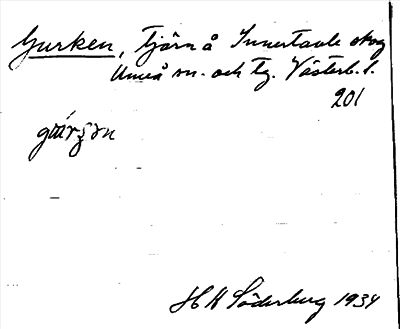 Gurken, tjärn å Innertavle skog
Umeå sn. och tg. Västerb. l.
201
H H Söderburg 1934